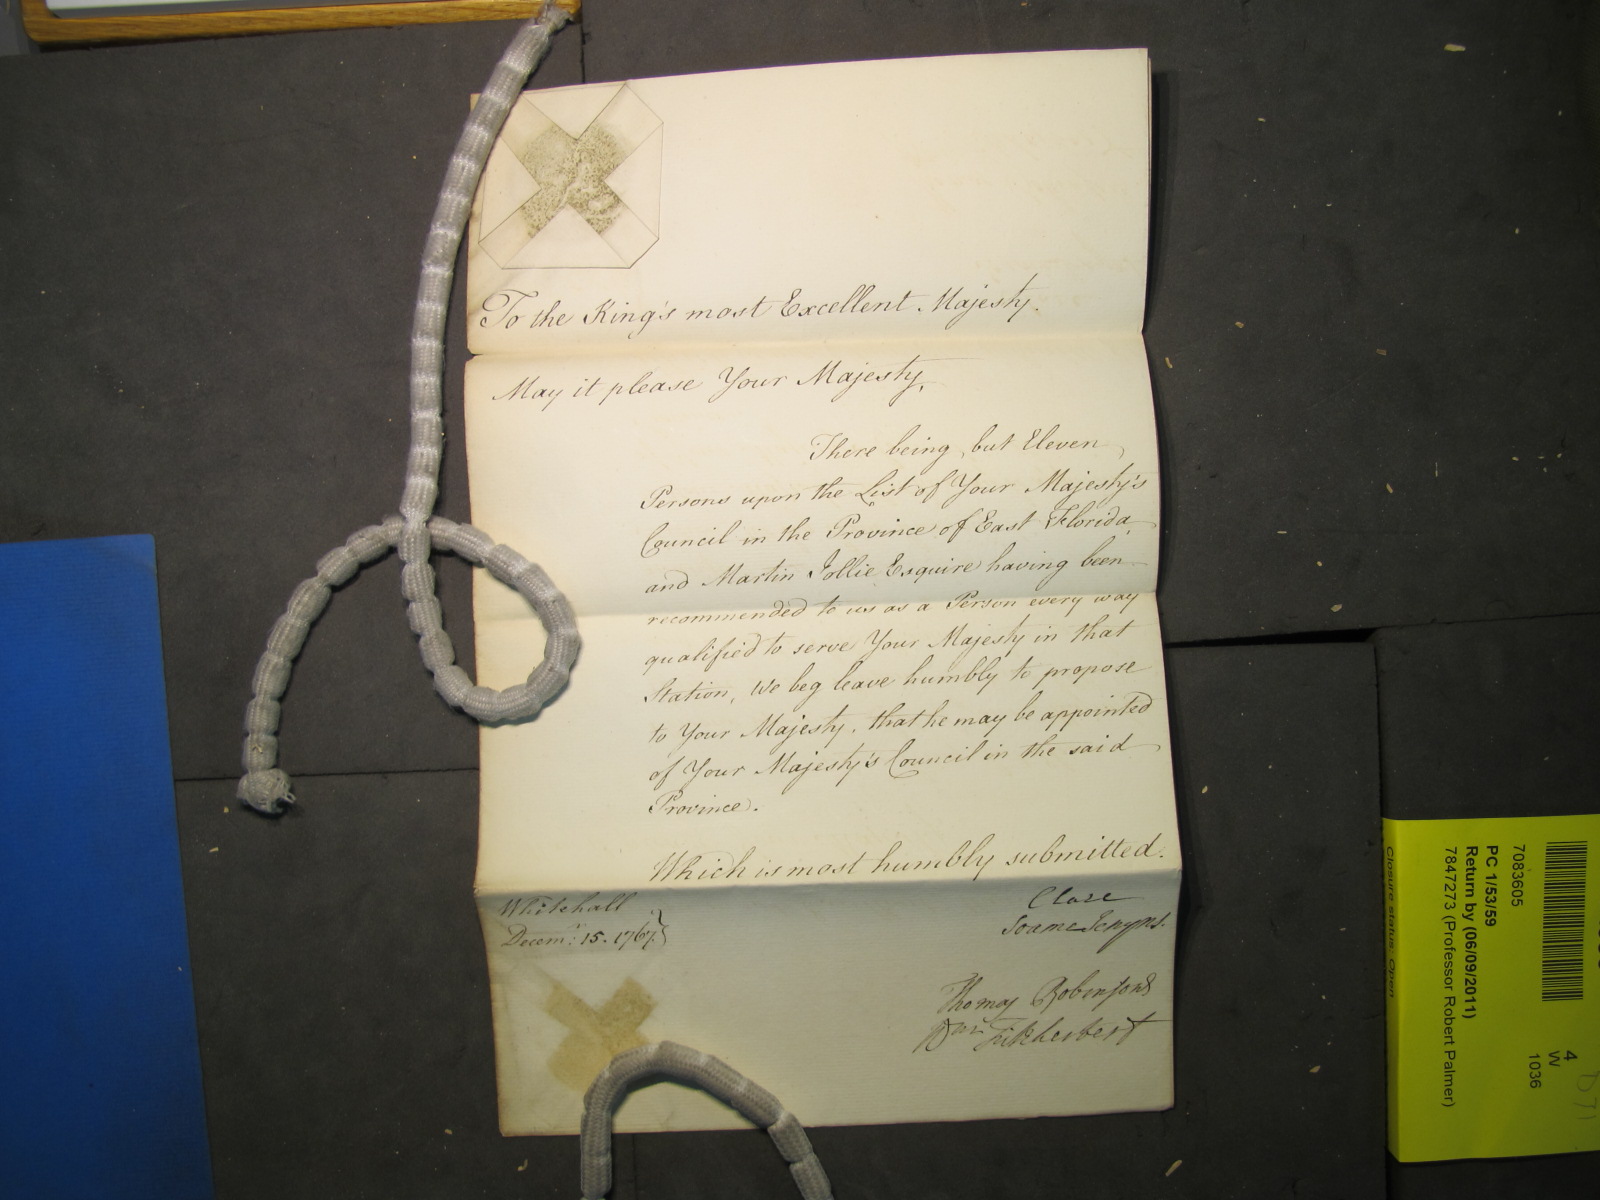 To the King's most Excellent Majesty.
May it please Your Majesty,
There being but Eleven
Persons upon the List of Your Majesty's
Council in the Province of East Florida,
and Martin Jollie Esquire having been
recommended to us as a Person every way
qualified to serve Your Majesty in that
Station, We beg leave humbly to propose
to Your Majesty, that he may be appointed
of Your Majesty's Council in the said
Province.
Which is most humbly submitted.
Whitehall
Decem.r 15. 1767.
Clare
Soame Jenyns.
Thomas Robinson
Wm Fitzherbert
4
W
1036
7083605
PC 1/53/59
Return by (06/09/2011)
7847273 (Professor Robert Palmer)
Closure status: Open